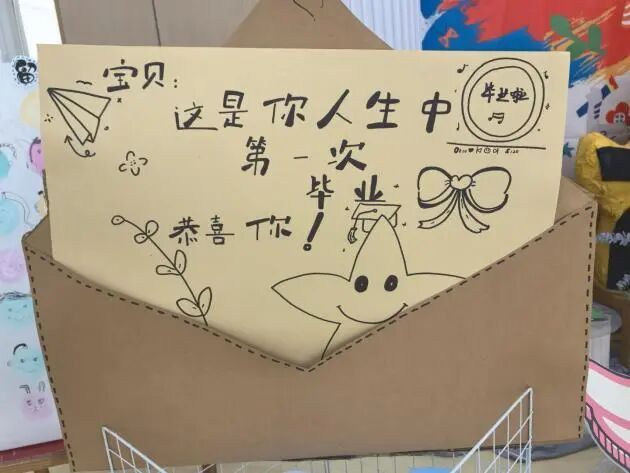 宝贝:
这是你人生中
第一次
毕业
恭喜你!
毕业啦
留